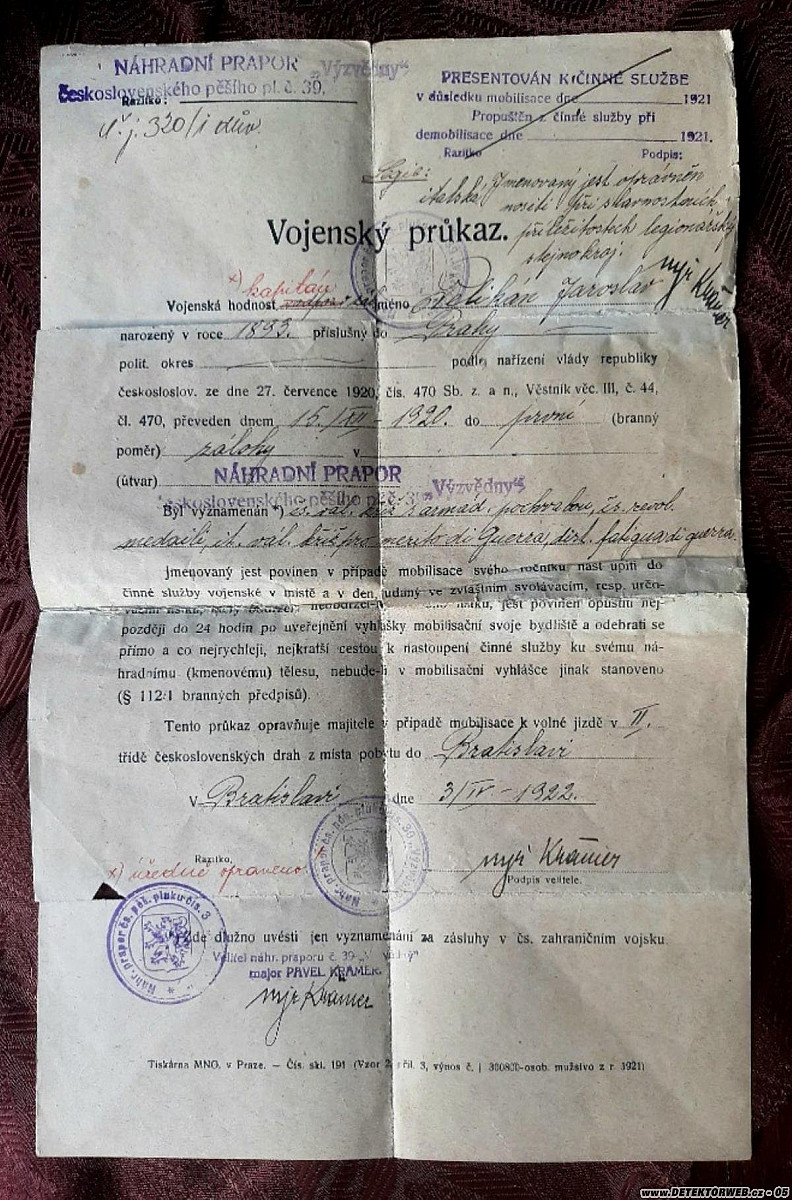 NÁHRADNÍ PRAPOR „Výzvědný“
československého pěšího pl. č. 39,
Razítko:
č. j. 320/i dův.
PRESENTOVÁN K ČINNÉ SLUŽBĚ
v důsledku mobilisace dne 1921
Propuštěn z činné služby při
demobilisace dne 1921.
Razítko Podpis:
Legie:
italská
Jmenovaný jest oprávněn
nositi při slavnostních
příležitostech legionářský
stejnokroj.
mjr Krämer
Vojenský průkaz.
x) kapitán
Vojenská hodnost jméno Pelikán Jaroslav
narozený v roce 1893. příslušný do Prahy
polit. okres podle nařízení vlády republiky
českoslov. ze dne 27. července 1920, čís. 470 Sb. z. a n., Věstník věc. III, č. 44,
čl. 470, převeden dnem 15./XII – 1920. do první (branný
poměr) zálohy v
(útvar) NÁHRADNÍ PRAPOR „Výzvědný“
československého pěšího pl. č. 3
Byl vyznamenán *) čs. vál. kříž s armád. pochvalou, čs. revol.
medailí, it. vál. kříž, pro merito di Guerra, dist. fatigua di guerra.
Jmenovaný jest povinen v případě mobilisace svého ročníku nastoupiti do
činné služby vojenské v místě a v den, udaný ve zvláštním svolávacím, resp. určo-
lístku, jest povinen opustiti nej-
později do 24 hodin po uveřejnění vyhlášky mobilisační svoje bydliště a odebrati se
přímo a co nejrychleji, nejkratší cestou k nastoupení činné služby ku svému ná-
hradnímu (kmenovému) tělesu, nebude-li v mobilisační vyhlášce jinak stanoveno
(§ 112/1 branných předpisů).
Tento průkaz opravňuje majitele v případě mobilisace k volné jízdě v II.
třídě československých drah z místa pobytu do Bratislavi
V Bratislavi dne 3/IV – 1922.
Razítko.
x) úředně opraveno.
mjr Krämer
Podpis velitele.
Náhr. prapor čs. pěš. pluku čís. 3
Zde dlužno uvésti jen vyznamenání za zásluhy v čs. zahraničním vojsku
Velitel náhr. praporu č. 39
major PAVEL KRÄMER
mjr Krämer
Tiskárna MNO. v Praze. — Čís. skl. 191
www.DETEKTORWEB.cz - 05